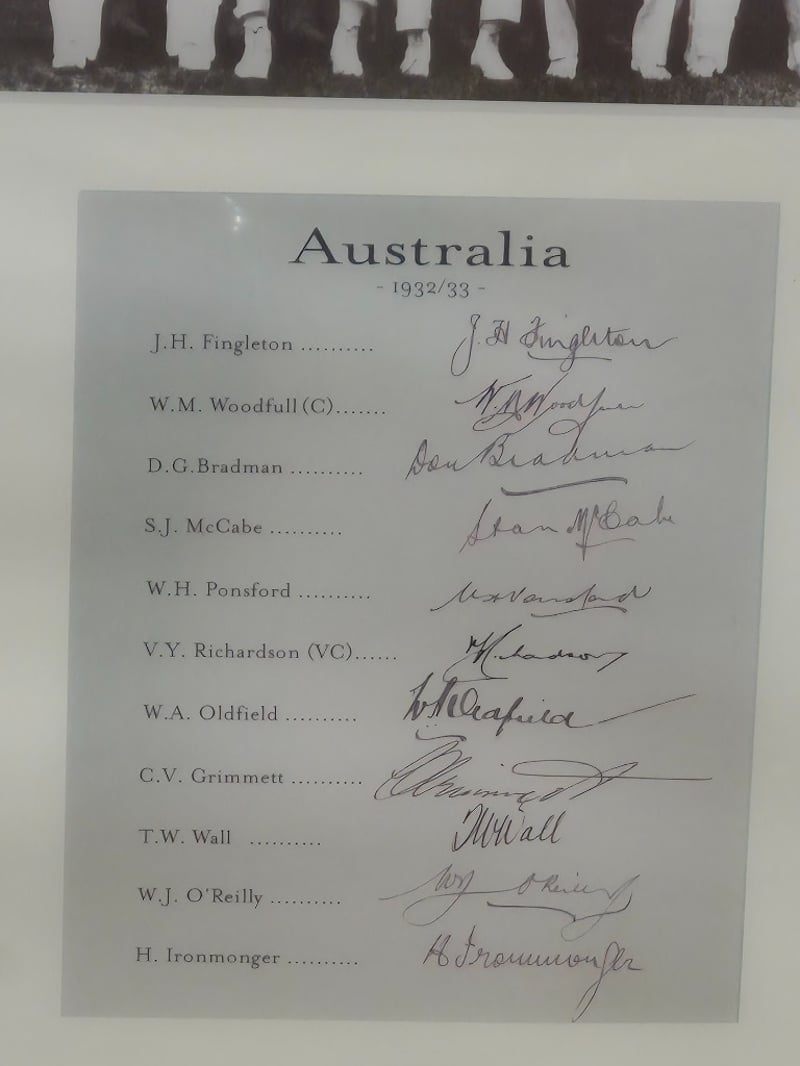 Australia
- 1932/33 -
J.H. Fingleton .......... J. H Fingleton
W.M. Woodfull (C)....... W. M Woodfull
D.G.Bradman .......... Don Bradman
S.J. McCabe .......... Stan McCabe
W.H. Ponsford .......... W H Ponsford
V.Y. Richardson (VC)...... V Y Richardson
W.A. Oldfield .......... W A Oldfield
C.V. Grimmett .......... C V Grimmett
T.W. Wall .......... T W Wall
W.J. O'Reilly .......... W J O'Reilly
H. Ironmonger .......... H Ironmonger